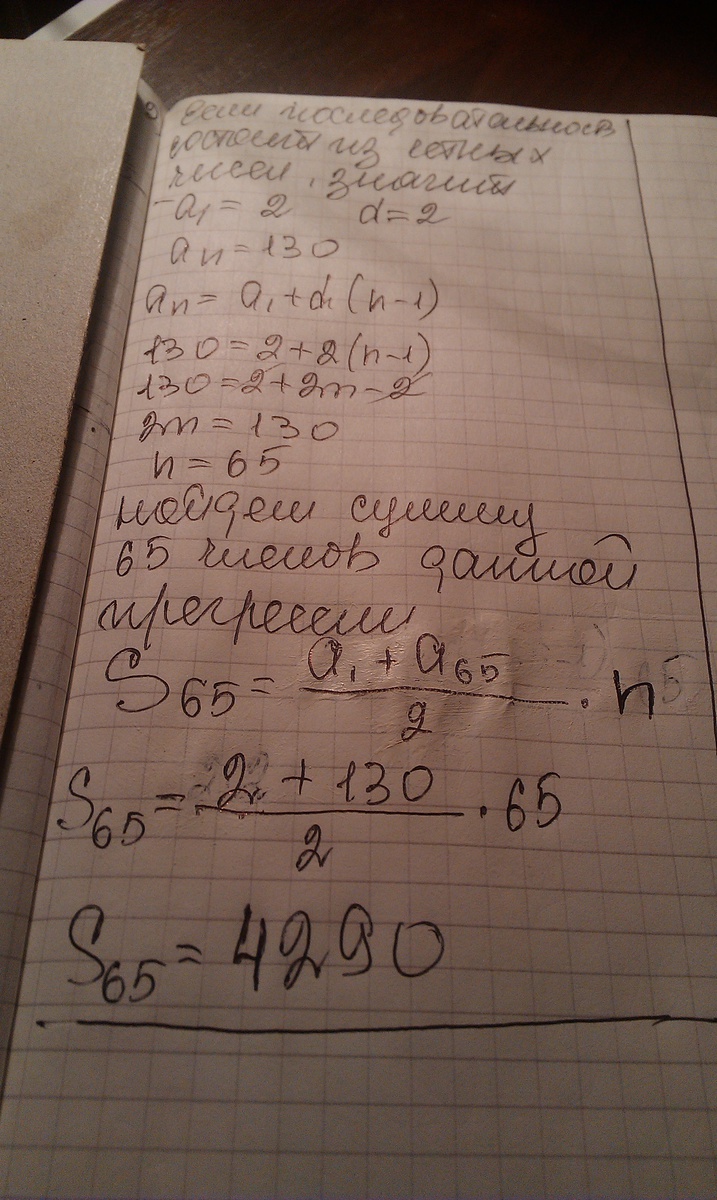 если последовательность
состоит из четных
чисел, значит
a₁ = 2 d = 2
aₙ = 130
aₙ = a₁ + d (n-1)
130 = 2 + 2(n-1)
130 = 2 + 2n - 2
2n = 130
n = 65
найдем сумму
65 членов данной
прогрессии
S₆₅ = (a₁ + a₆₅)/2 · n
S₆₅ = (2 + 130)/2 · 65
S₆₅ = 4290